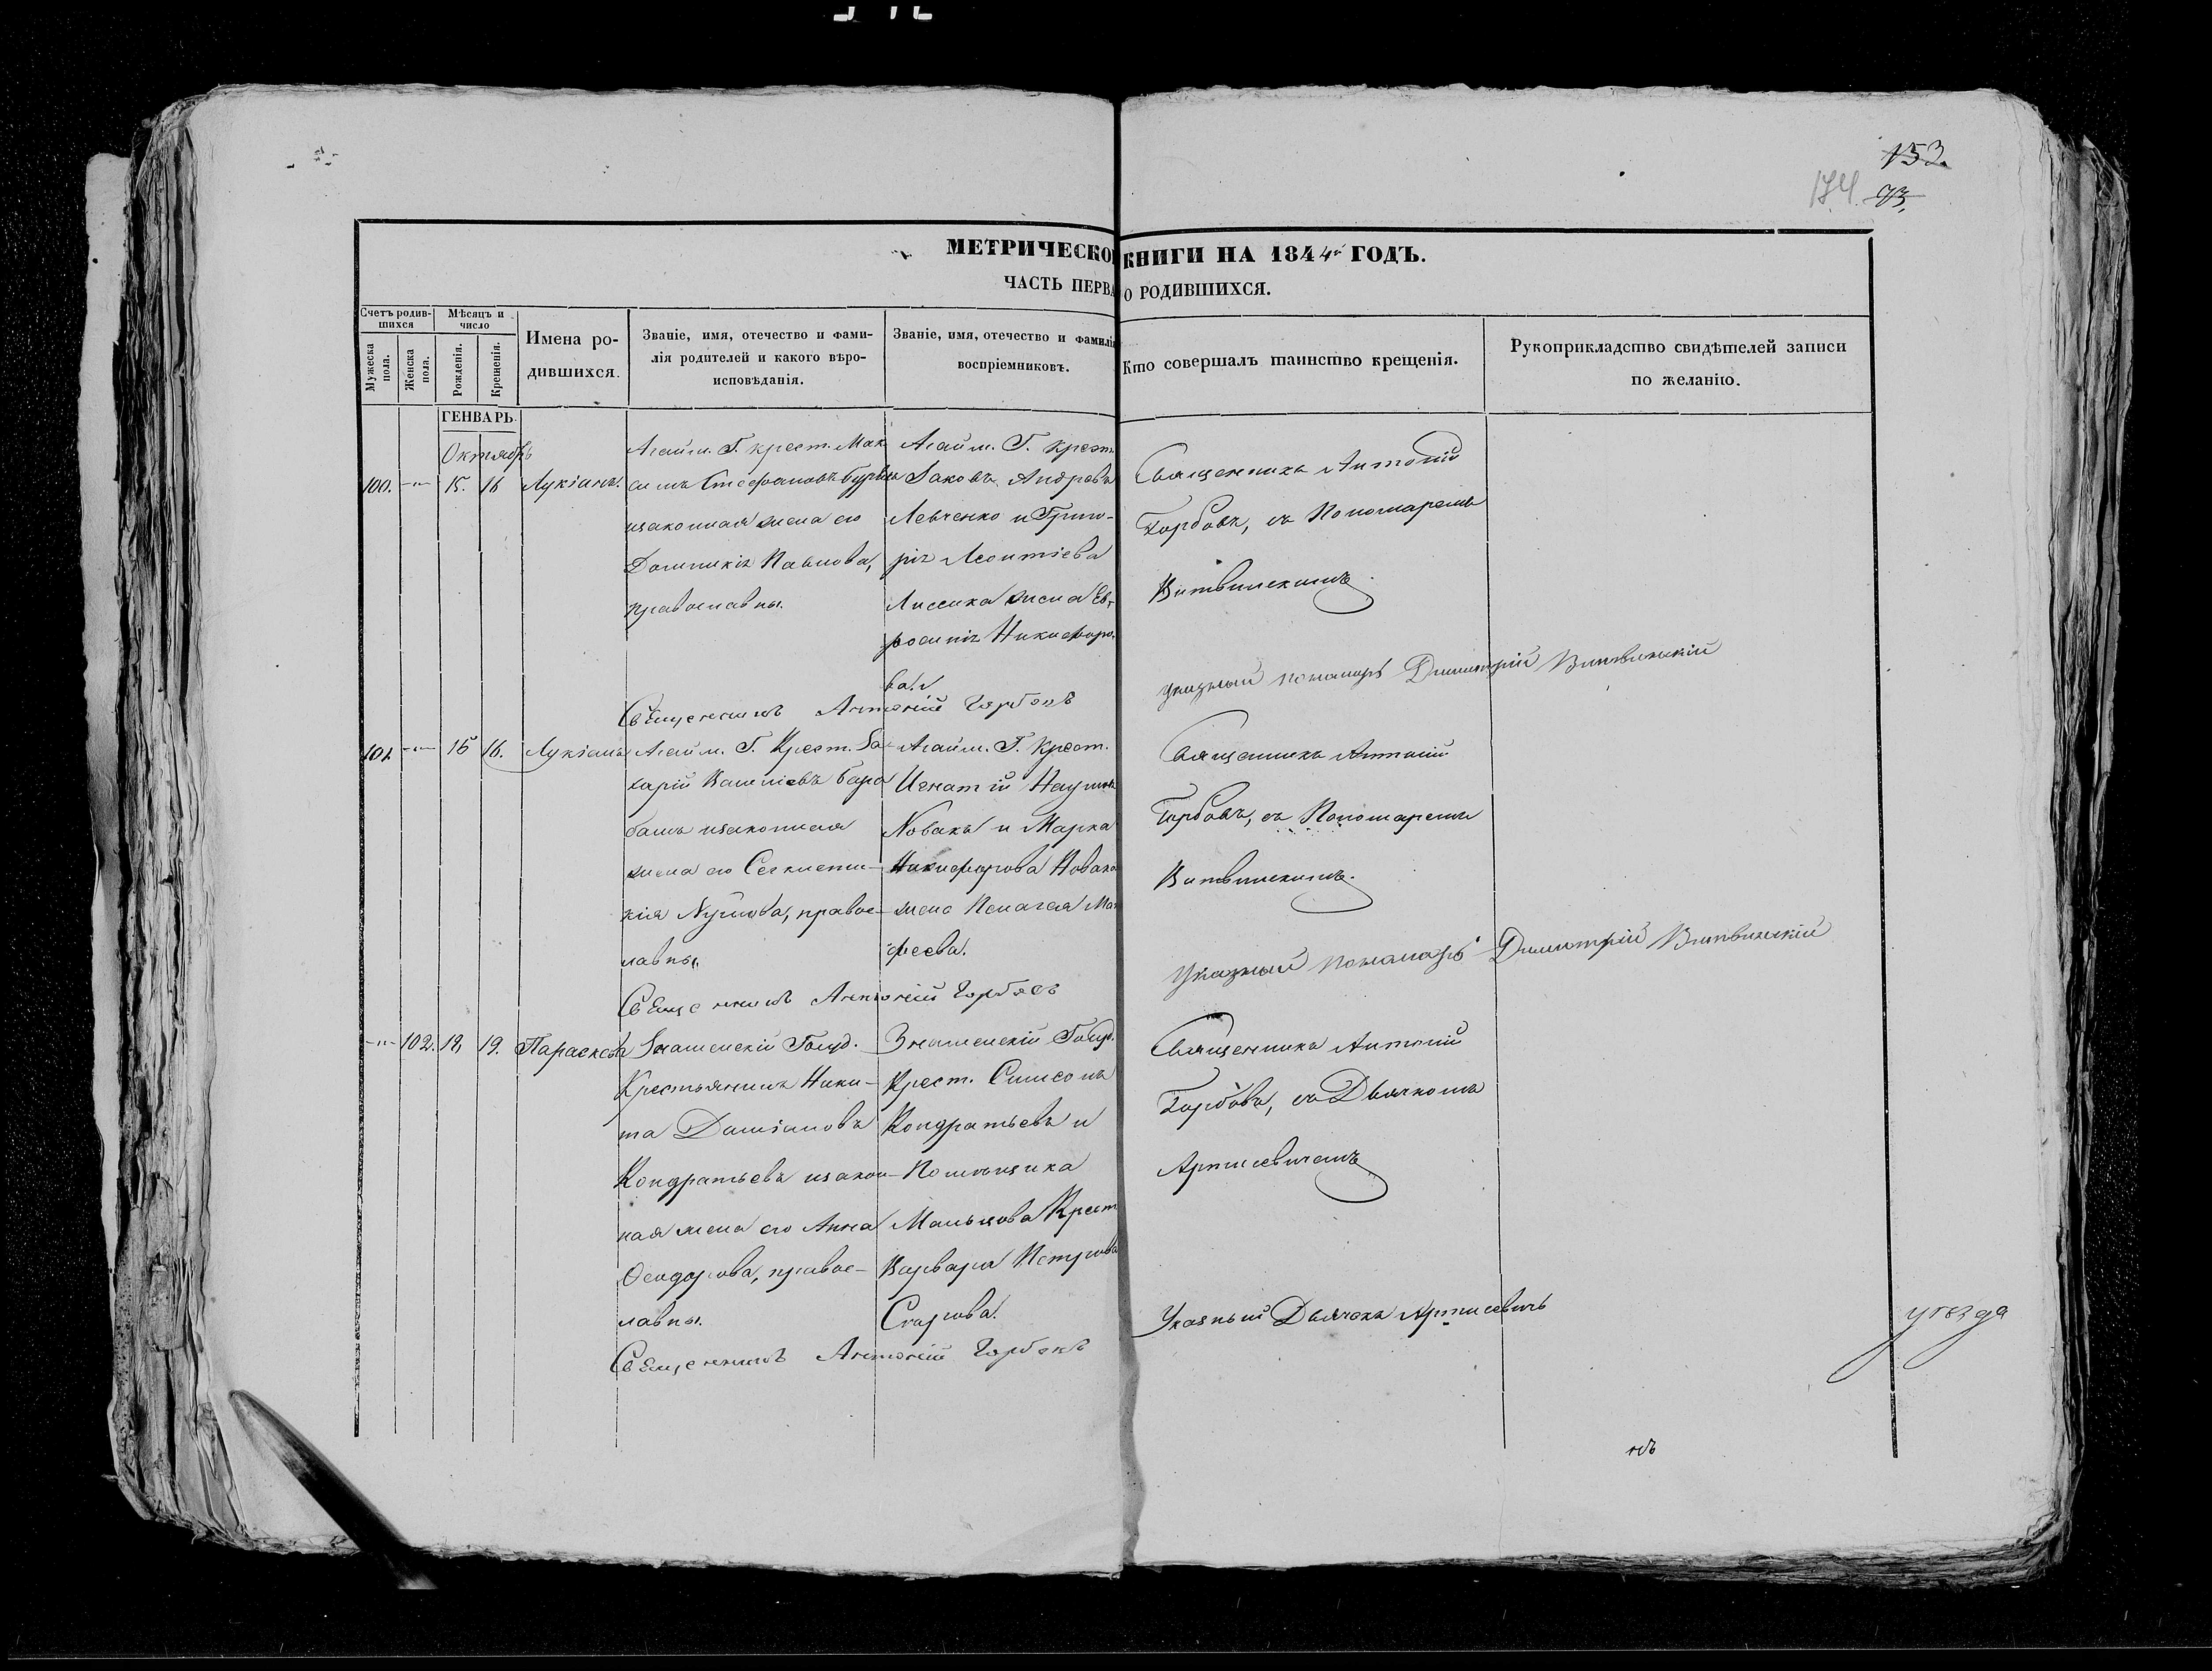 153.
174. 93.
МЕТРИЧЕСКО КНИГИ НА 1844й ГОДЪ.
ЧАСТЬ ПЕРВА О РОДИВШИХСЯ.
Счетъ родив-
шихся
Мужеска пола.
Женска пола.
Мѣсяцъ и
число
Рожденія.
Крещенія.
Имена ро-
дившихся.
Званіе, имя, отечество и фами-
лія родителей и какого вѣро-
исповѣданія.
Званіе, имя, отечество и фамилія
воспріемниковъ.
Кто совершалъ таинство крещенія.
Рукоприкладство свидѣтелей записи
по желанію.
ГЕНВАРЬ.
Октябрь
100. -"- 15. 16 Лукіанъ.
Агайм. Г. крест. Мак
симъ Стефановъ
изаконная жена его
Домникія Павлова,
православны.
Агайм. Г. крест.
Іаковъ Андреевъ
Левченко и Григо-
рія Леонтіева
жена Ев-
росинія Никифоро-
ва.
Священникъ Антоній
Горбовъ, съ Пономаремъ
Витвинскимъ.
Указный пономарь Димитрій Витвинскій
Священникъ Антоній Горбовъ
101. -"- 15 16. Лукіанъ
Агайм. Г. Крест. За-
харій Василіевъ Бара
банъ изаконная
жена его Секлети-
кія Наумова, правос-
лавны.
Агайм. Г. крест.
Игнатій Наумовъ
Новакъ и Марка
Никифорова Новака
жена Пелагея Мат
феева.
Священникъ Антоній
Горбовъ, съ Пономаремъ
Витвинскимъ.
Указный пономарь Димитрій Витвинскій
Священникъ Антоній Горбовъ
-"- 102. 18. 19. Параскева
Знаменскій Госуд.
Крестьянинъ Ники-
та Даміановъ
Кондратьевъ изакон-
ная жена его Анна
Ѳеодорова, правос-
лавны.
Знаменскій Госуд.
Крест. Симеонъ
Кондратьевъ и
Помѣщика
Мальцова Крест
Варвара Петрова
Священникъ Антоній
Горбовъ, съ Дьячкомъ
Артисевичемъ
Указный Дьячокъ Артисевичъ
Священникъ Антоній Горбовъ
уѣзда